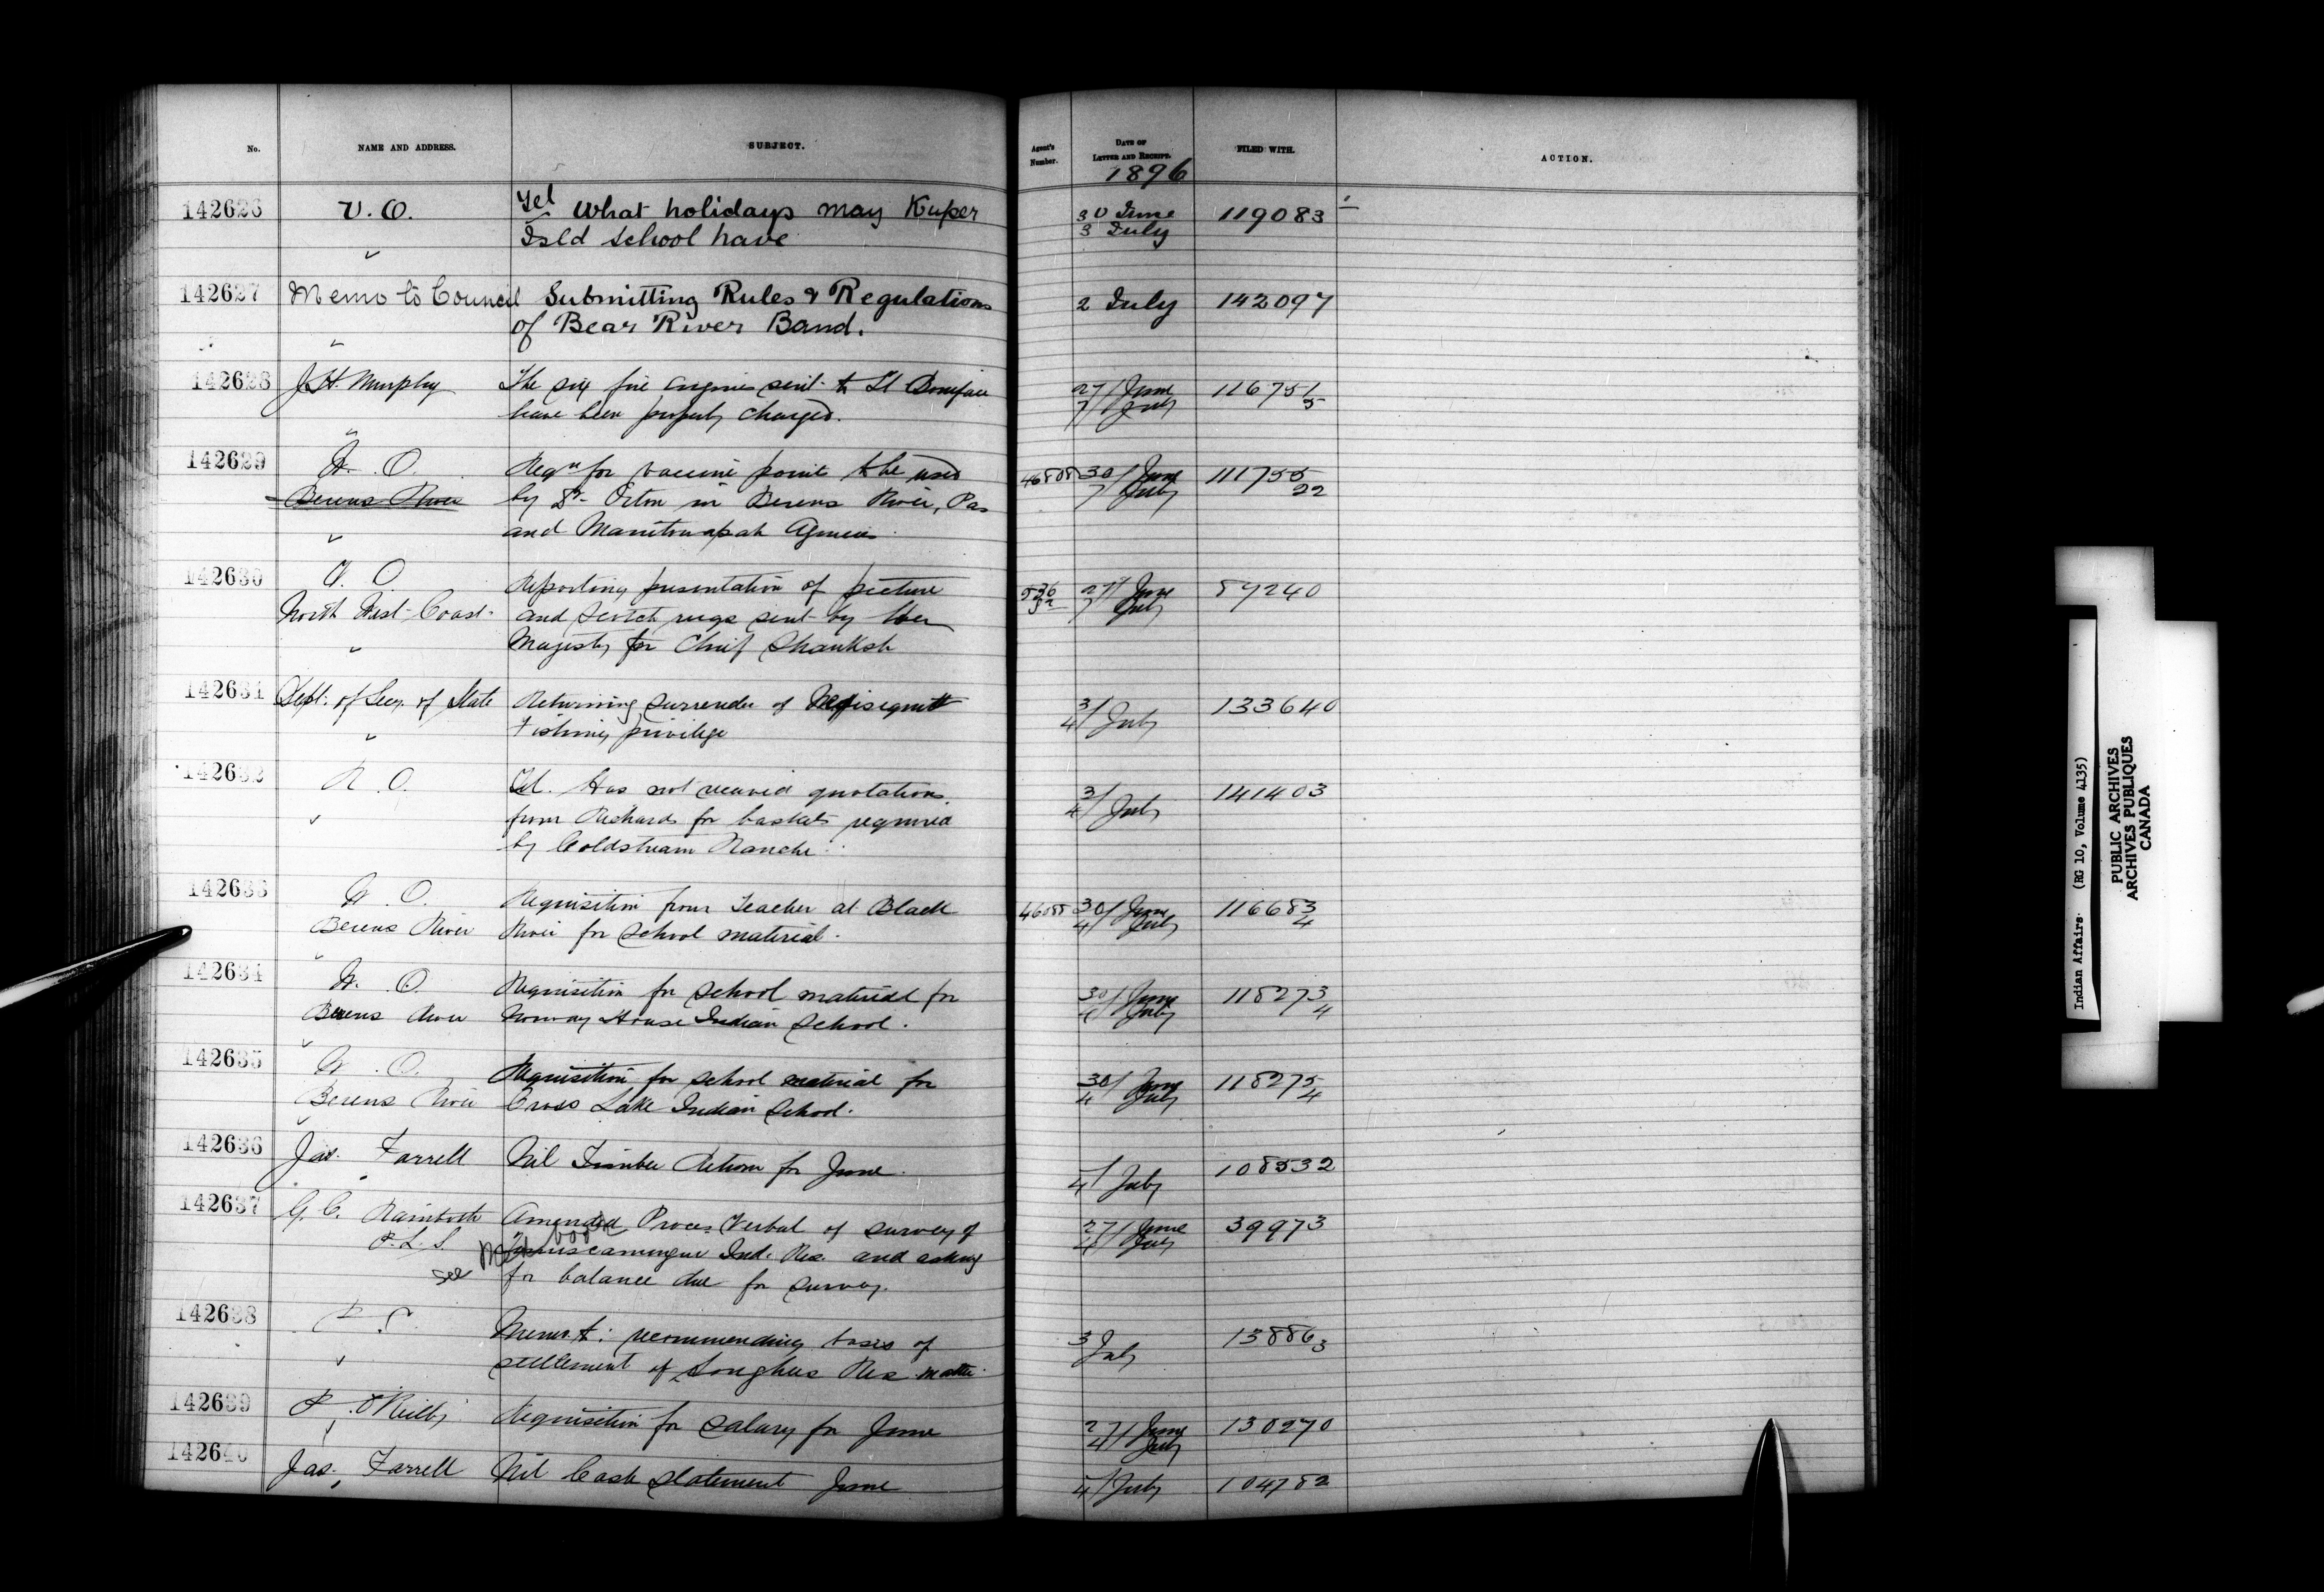 No. NAME AND ADDRESS. SUBJECT. Agent's Number. DATE OF LETTER AND RECEIPT. FILED WITH. ACTION.
1896
142626 V.O. Tel What holidays may Kuper 30 June 119083
Isld School have 3 July
142627 Memo to Council Submitting Rules & Regulations 2 July 142097
of Bear River Band.
142628 J.H. Murphy The six fire engines sent to St Boniface 27/ June 116751/5
have been properly charged. 7/ July
142629 W. O. Reqn for vaccine points to be used 46808 30/ June 111755
Berens River by Dr Orton in Berens River, Pas 7/ July 22
and Manitowapah Agencies
142630 V. O Reporting presentation of picture 536 27/ June 87240
North West Coast and Scotch rugs sent by Her 7/ July
Majesty for Chief
142631 Dept. of Secy. of State Returning Surrender of 3/ 133640
Fishing privilege 4/ July
142632 R. O. Tel. Has not received quotations 3/ 141403
from Richards for baskets required 4/ July
by Coldstream Ranche
142633 W. O. Requisition from Teacher at Black 46088 30/ June 116683
Berens River River for School material. 4/ July 4
142634 W. O. Requisition for School material for 30/ June 118273
Berens River Norway House Indian School. 4/ July 4
142635 W. O. Requisition for School material for 30/ June 118275
Berens River Cross Lake Indian School. 4/ July 4
142636 Jas. Farrell Nil Timber Return for June. 4/ July 108532
142637 G. C. Rainboth Amended Proces Verbal of Survey of 27/ June 39973
P.L.S. Temiscamingue Ind. Res. and asking 4/ July
see book for balance due for Survey.
142638 Memo. recommending basis of 3 July 138863
settlement of Songhees Res. matter
142639 P. O'Reilly Requisition for Salary for June 27/ June 130270
4/ July
142640 Jas. Farrell Nil Cash Statement June 4/ July 104782
Indian Affairs. (RG 10, Volume 4135)
PUBLIC ARCHIVES
ARCHIVES PUBLIQUES
CANADA